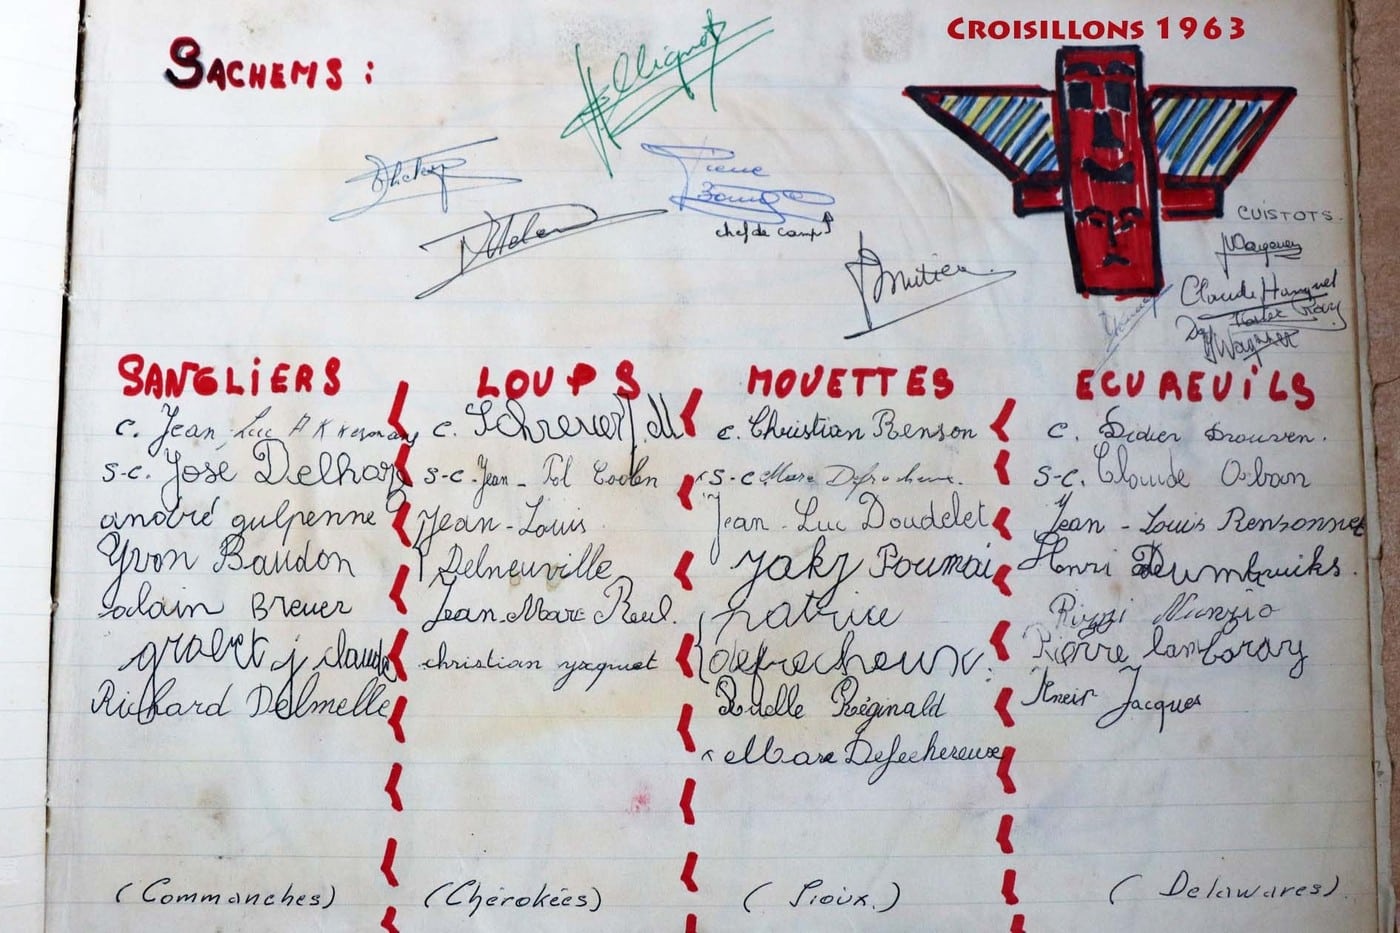 CROISILLONS 1963
SACHEMS :
Pierre
chef de camp
CUISTOTS.
Claude Hanquet
Wagner
SANGLIERS
c. Jean-Luc
s-c. José Delhar
andré gulpenne
Yvon Baudon
alain Breuer
j claude
Richard Delmelle
LOUPS
c. Schreuer M
s-c. Jean-Pol Coolen
Jean-Louis
Delneuville
Jean-Marc Reul.
christian yzquet
(Chérokées)
MOUETTES
c. Christian Renson
s-c Marc Defrecheux.
Jean-Luc Doudelet
Jaky Poumai
patrice
defrecheux
Ruelle Réginald
Marc Defechereux
(Sioux.)
ECUREUILS
c. Didier Drouven.
s-c. Claude Orban
Jean-Louis Rensonnet
Henri
Rizzi Nunzio
Pierre lamboray
Kneip Jacques
(Delawares)
(Commanches)